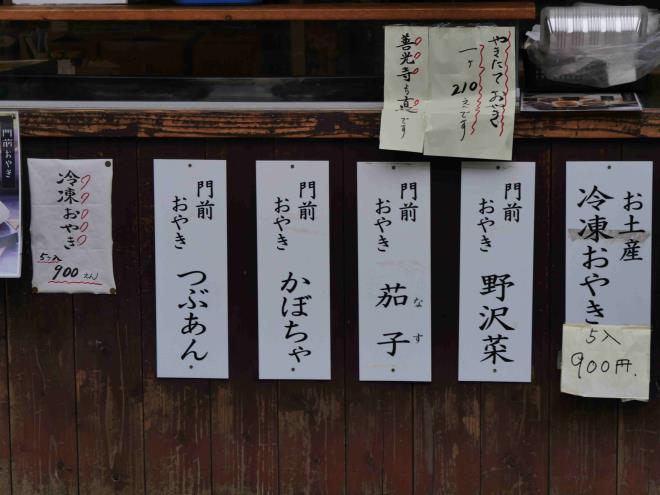 やきたておやき
一ヶ 210えです
善光寺も近
です
お土産
冷凍おやき
5ヶ入
900円.
門前
おやき
野沢菜
門前
おやき
茄子
なす
門前
おやき
かぼちゃ
門前
おやき
つぶあん
冷凍おやき
5ヶ入
900えん
門前おやき